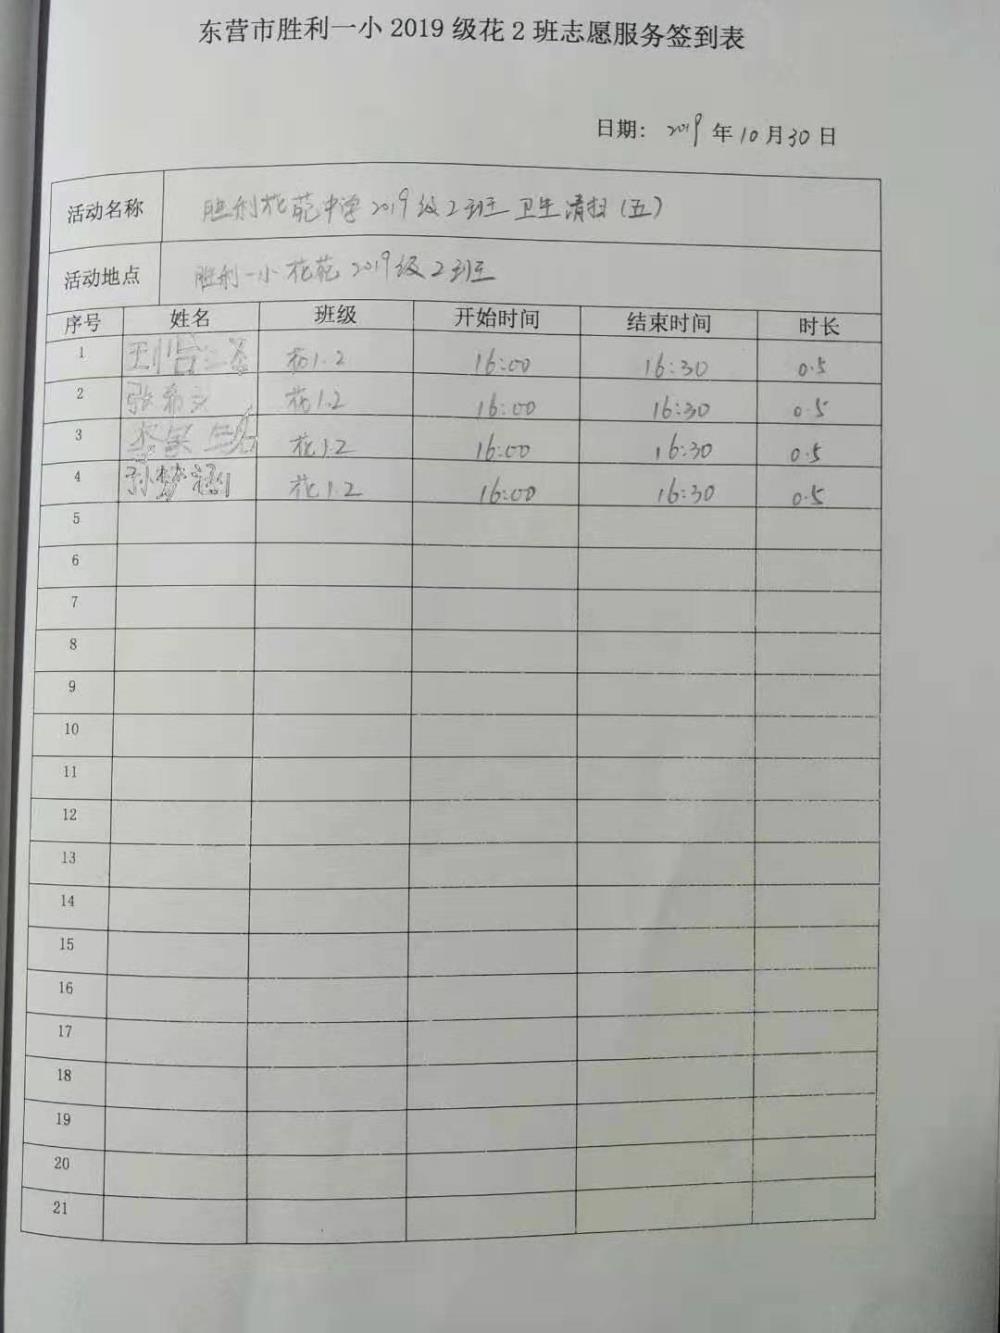 东营市胜利一小 2019 级花 2 班志愿服务签到表
日期： 2019 年 10 月 30 日
活动名称 胜利花苑中学2019级2班卫生清扫（五）
活动地点 胜利一小花苑2019级2班
序号 姓名 班级 开始时间 结束时间 时长
1 花1.2 16:00 16:30 0.5
2 张希文 花1.2 16:00 16:30 0.5
3 花1.2 16:00 16:30 0.5
4 孙梦涵 花1.2 16:00 16:30 0.5
5
6
7
8
9
10
11
12
13
14
15
16
17
18
19
20
21